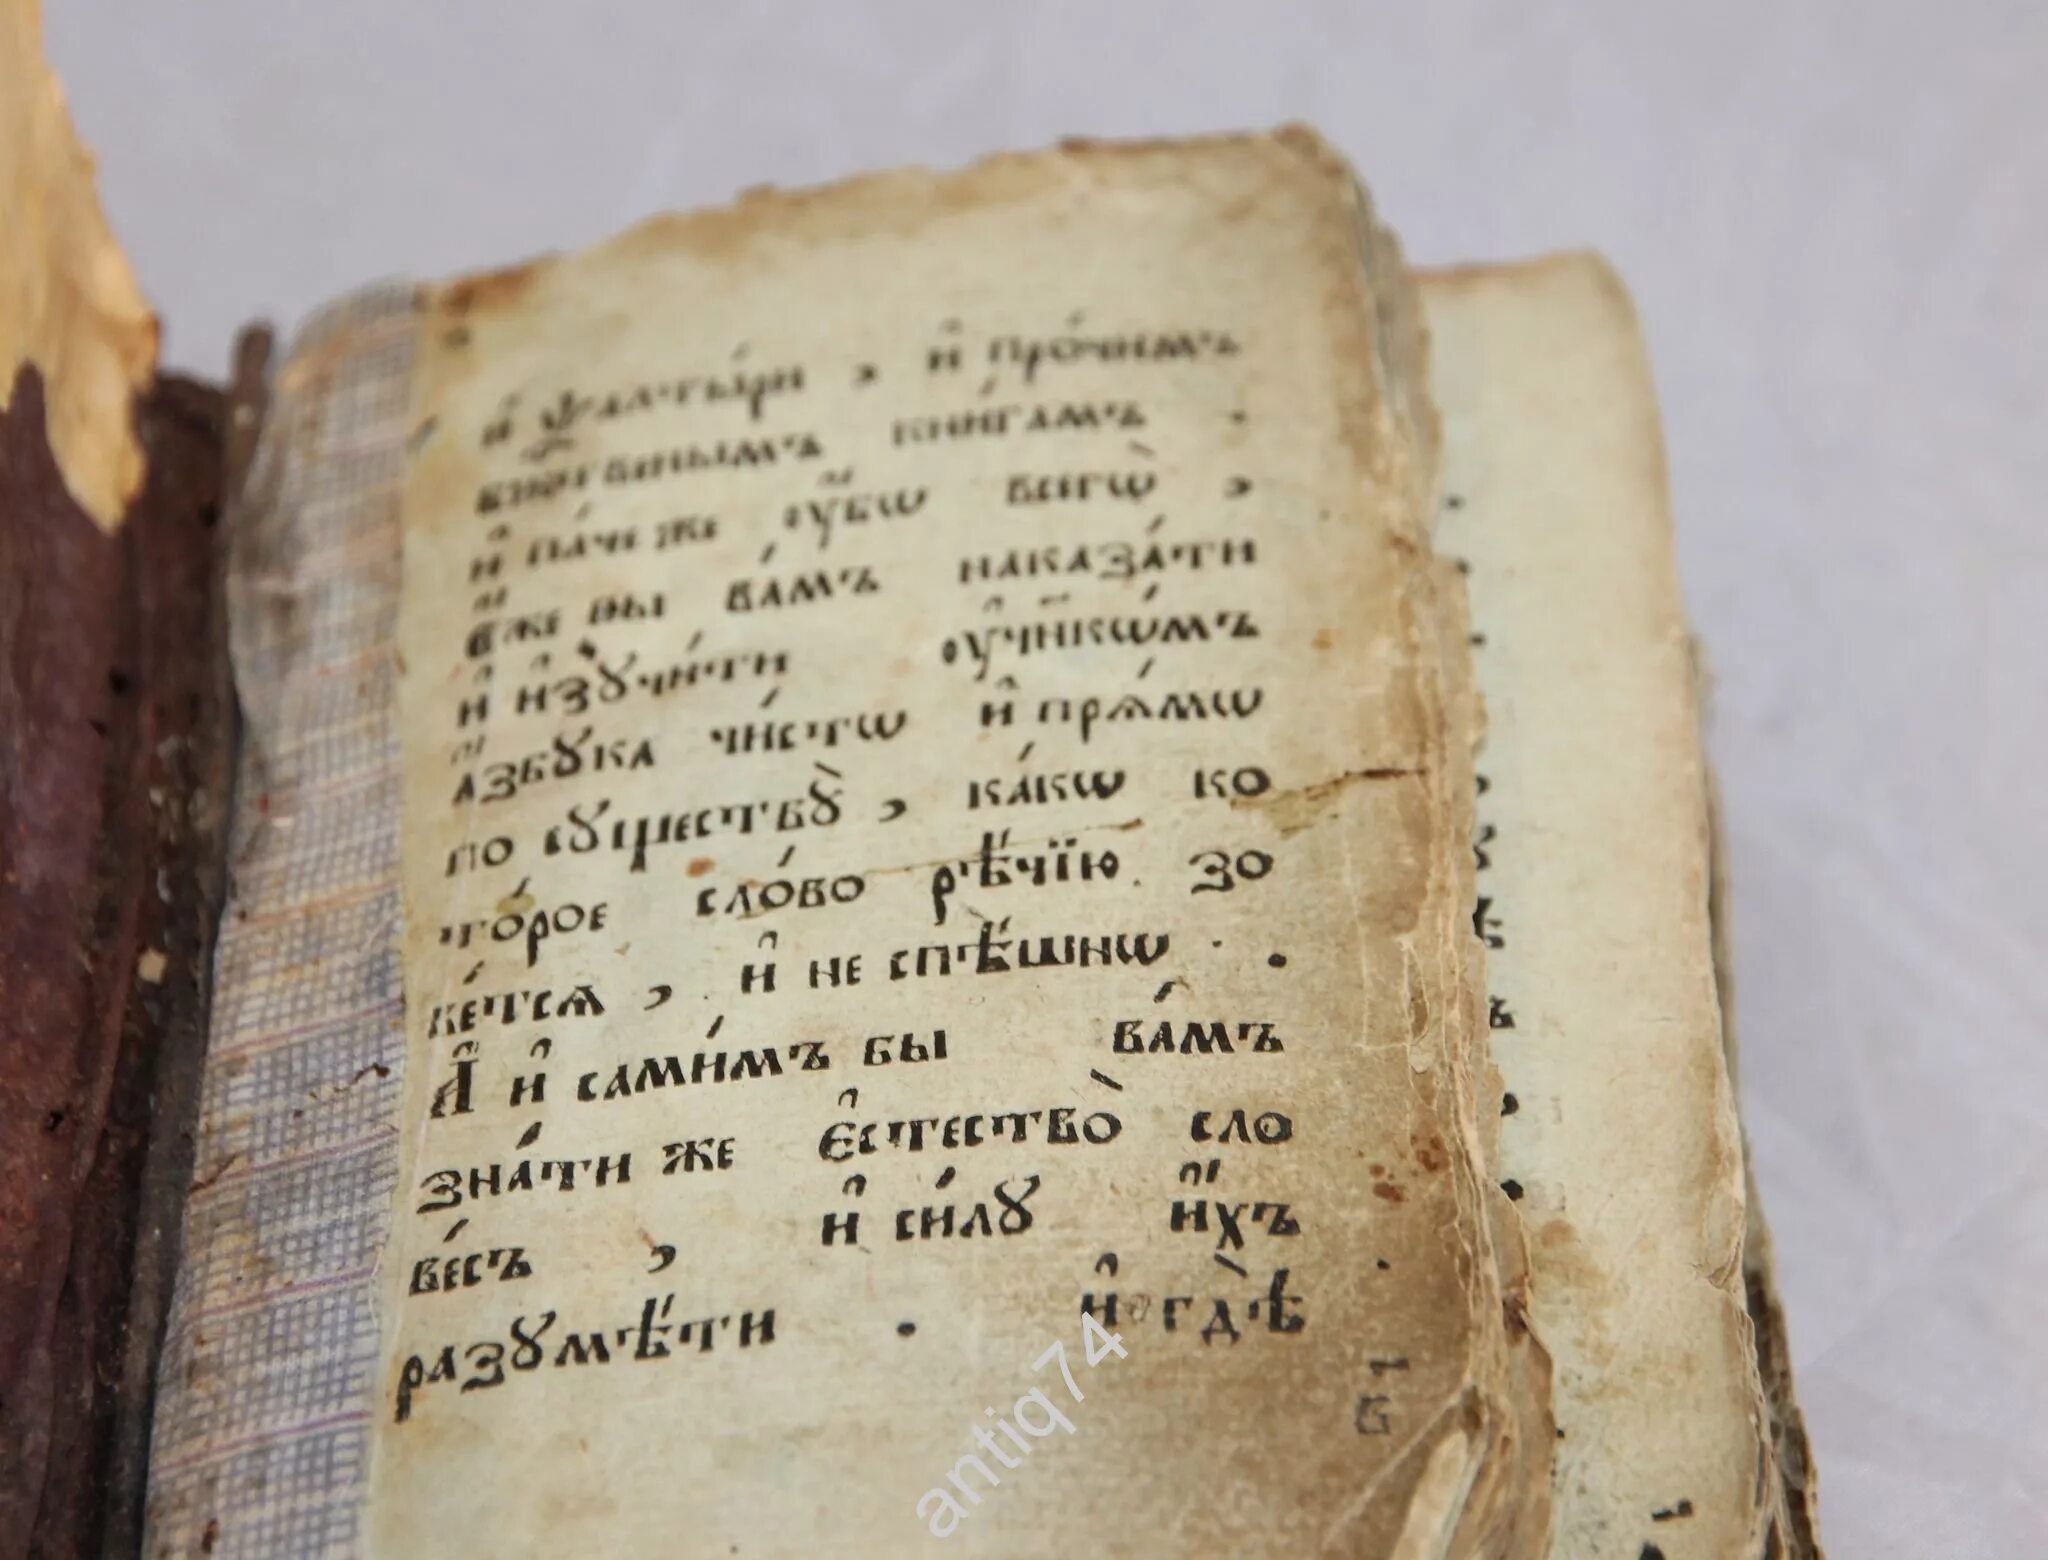 и҆ ѱалты́ри , и҆ про́чимъ
бж҃е́твенымъ кни́гамъ .
и҆ па́че же ᲂу҆́бѡ всегѡ̀ ,
е҆́же бы ва́мъ наказа́ти
и҆ и҆зꙋчи́ти ᲂу҆чн҃кѡ́мъ
а҆́збꙋка чи́стѡ и҆ прѧ́мѡ
по сꙋществꙋ̀ , ка́кѡ ко
то́рое сло́во рѣ́чїю зо
ве́тсѧ , и҆ не спѣ́шнѡ .
А҆ и҆ сами́мъ бы ва́мъ
зна́ти же є҆стество̀ сло
ве́съ , и҆ си́лꙋ и҆́хъ
разꙋмѣ́ти . и҆ гдѣ̀
antiq74